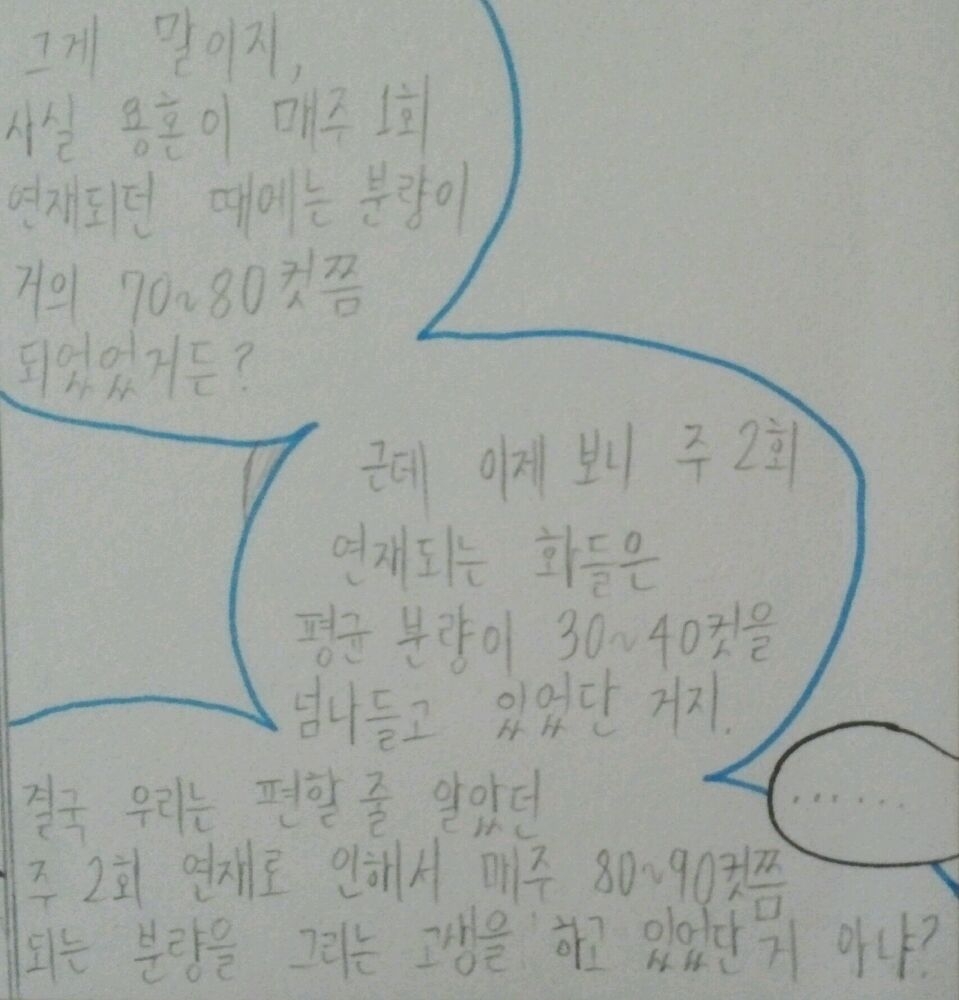 그게 말이지,
사실 용혼이 매주 1회
연재되던 때에는 분량이
거의 70~80컷쯤
되었었거든?
근데 이제 보니 주 2회
연재되는 화들은
평균 분량이 30~40컷을
넘나들고 있었단 거지.
......
결국 우리는 편할 줄 알았던
주 2회 연재로 인해서 매주 80~90컷쯤
되는 분량을 그리는 고생을 하고 있었단 거 아냐?